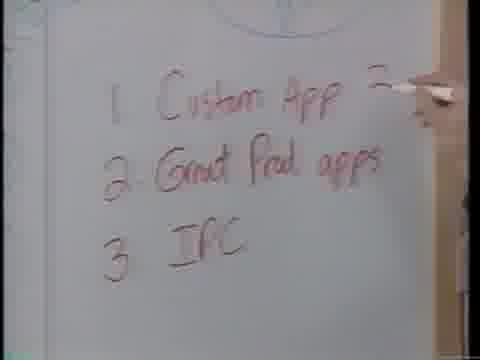 1 Custom App
2. Great Prod. apps
3 IPC